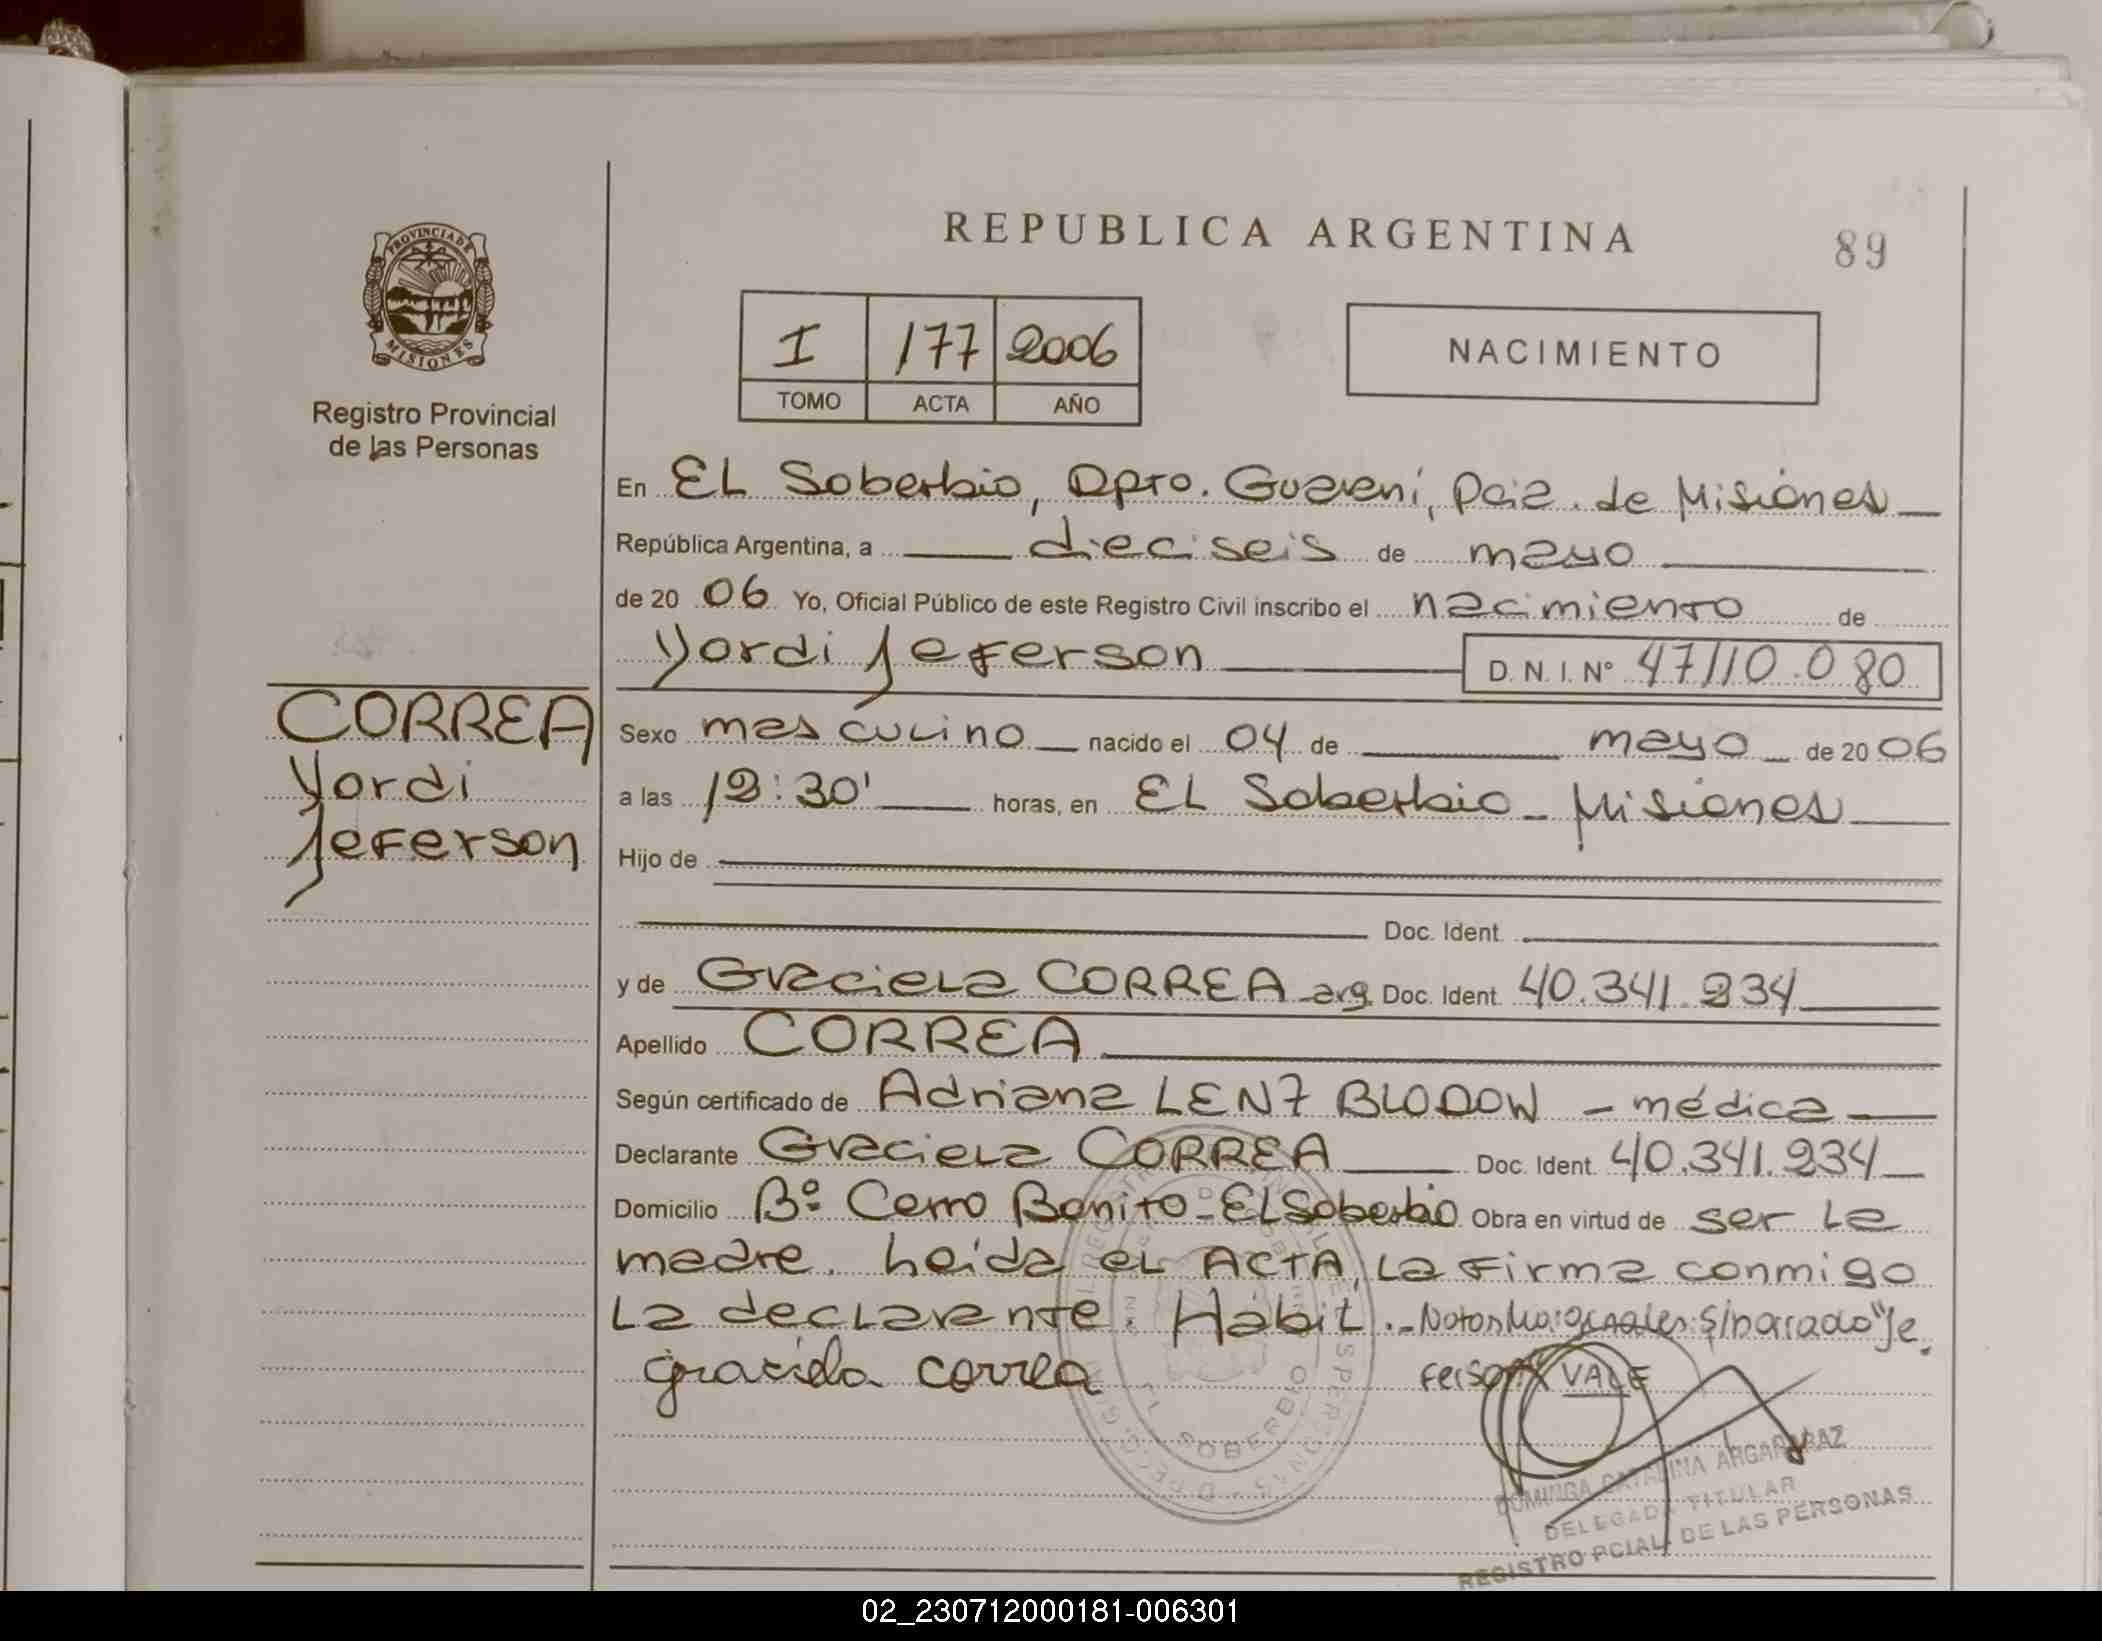 REPUBLICA ARGENTINA
89
PROVINCIA DE MISIONES
Registro Provincial
de las Personas
I 177 2006
TOMO ACTA AÑO
NACIMIENTO
En EL Soberbio, Dpto. Guaraní, Pcia. de Misiones
República Argentina, a dieciseis de mayo
de 20 06 Yo, Oficial Público de este Registro Civil inscribo el nacimiento de
Yordi Jeferson D. N. I. Nº 47110.080
CORREA
Yordi
Jeferson
Sexo masculino nacido el 04 de mayo de 20 06
a las 12:30' horas, en EL Soberbio - Misiones
Hijo de
Doc. Ident.
y de Graciela CORREA arg. Doc. Ident. 40.341.234
Apellido CORREA
Según certificado de Adriana LENZ BLODOW - médica
Declarante Graciela CORREA Doc. Ident. 40.341.234
Domicilio Bº Cerro Bonito - El Soberbio Obra en virtud de ser la
madre. Leída el ACTA, la firma conmigo
la declarante. Habit. - Notas Marginales: S/barado "Je
ferson" VALE
graciela correa
EL SOBERBIO
DOMINGA CATALINA ARGAÑARAZ
DELEGADA TITULAR
REGISTRO PCIAL. DE LAS PERSONAS
02_230712000181-006301